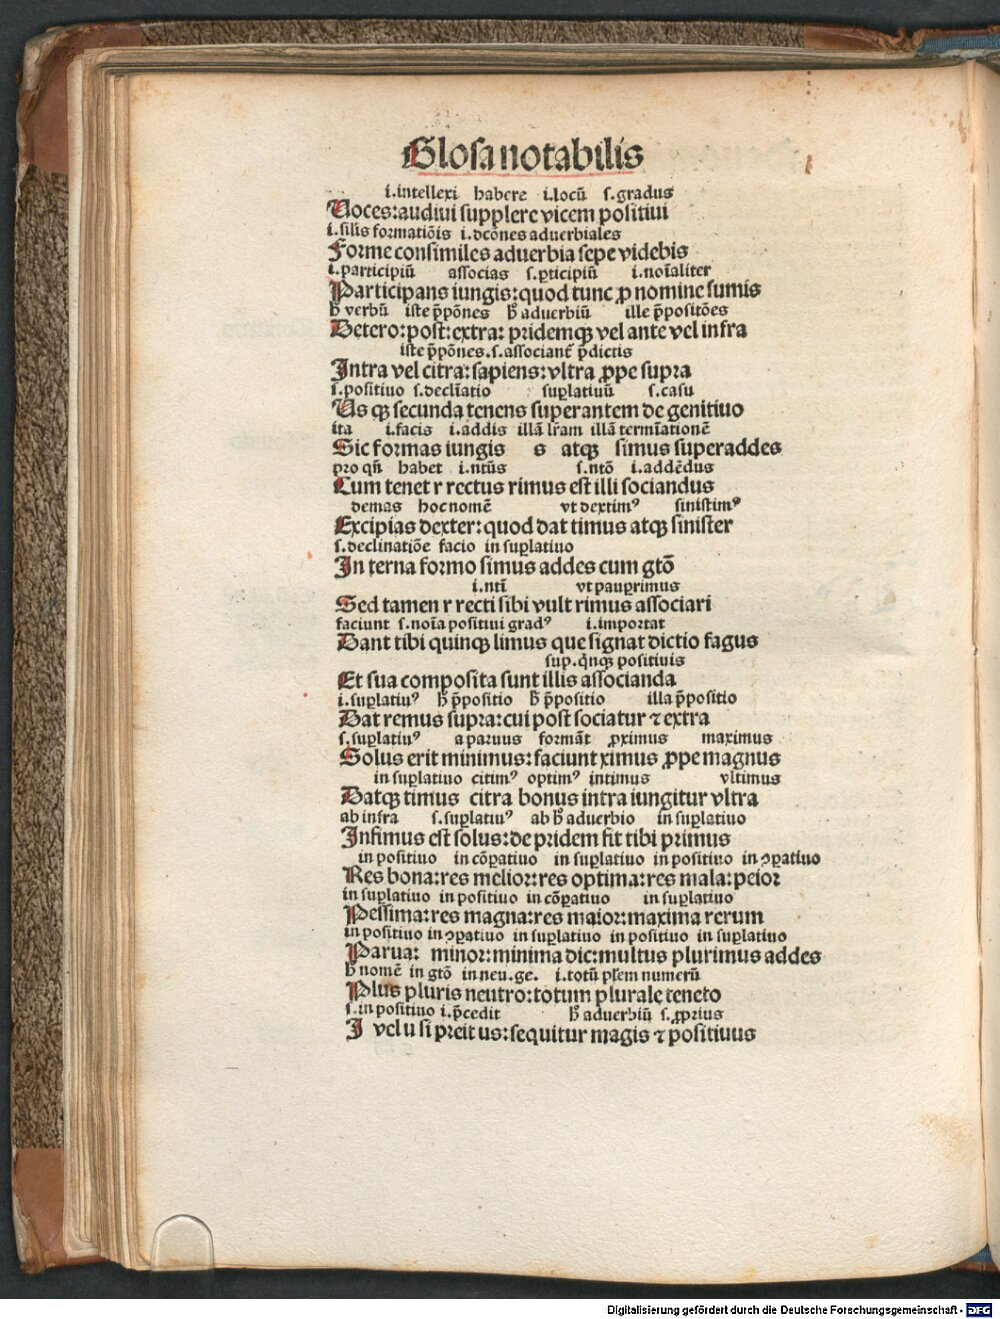 Glosa notabilis
i.intellexi habere i.locū s.gradus
Uoces:audiui supplere vicem positiui
i.silis formatiōis i.dcōnes aduerbiales
Forme consimiles aduerbia sepe videbis
i.participiū associas s.pticipiū i.noīaliter
Participans iungis:quod tunc ꝓ nomine sumis
h̄ verbū iste p̄pōnes h̄ aduerbiū ille p̄positōes
Hetero:post:extra: pridemqꝫ vel ante vel infra
iste p̄pōnes.s.associant̄ p̄dictis
Intra vel citra:sapiens:vltra ꝓpe supra
s.positiuo s.declīatio suꝑlatiuū s.casu
Us qꝫ secunda tenens superantem de genitiuo
ita i.facis i.addis illā lr̄am illā termīationē
Sic formas iungis s atqꝫ simus superaddes
pro qn̄ habet i.ntūs s.ntō i.addēdus
Cum tenet r rectus rimus est illi sociandus
demas hoc nomē vt dextimꝰ sinistimꝰ
Excipias dexter:quod dat timus atqꝫ sinister
s.declinatiōe facio in suꝑlatiuo
In terna formo simus addes cum gtō
i.ntī vt pauꝑrimus
Sed tamen r recti sibi vult rimus associari
faciunt s.noīa positiui gradꝰ i.importat
Dant tibi quinqꝫ limus que signat dictio fagus
sup.q̄nqꝫ positiuis
Et sua composita sunt illis associanda
i.suꝑlatiuꝰ h̄ p̄positio h̄ p̄positio illa p̄positio
Dat remus supra:cui post sociatur ⁊ extra
s.suꝑlatiuꝰ a paruus formāt ꝓximus maximus
Solus erit minimus:faciunt ximus ꝓpe magnus
in suꝑlatiuo citimꝰ optimꝰ intimus vltimus
Datqꝫ timus citra bonus intra iungitur vltra
ab infra s.suꝑlatiuꝰ ab h̄ aduerbio in suꝑlatiuo
Infimus est solus:de pridem fit tibi primus
in positiuo in cōꝑatiuo in suꝑlatiuo in positiuo in ꝯꝑatiuo
Res bona:res melior:res optima:res mala:peior
in suꝑlatiuo in positiuo in cōꝑatiuo in suꝑlatiuo
Pessima:res magna:res maior:maxima rerum
in positiuo in ꝯꝑatiuo in suꝑlatiuo in positiuo in suꝑlatiuo
Parua: minor:minima dic:multus plurimus addes
h̄ nomē in gtō in neu.ge. i.totū pl̄em numerū
Plus pluris neutro:totum plurale teneto
s.in positiuo i.p̄cedit h̄ aduerbiū s.ꝓprius
I vel u si preit us:sequitur magis ⁊ positiuus
Digitalisierung gefördert durch die Deutsche Forschungsgemeinschaft - DFG